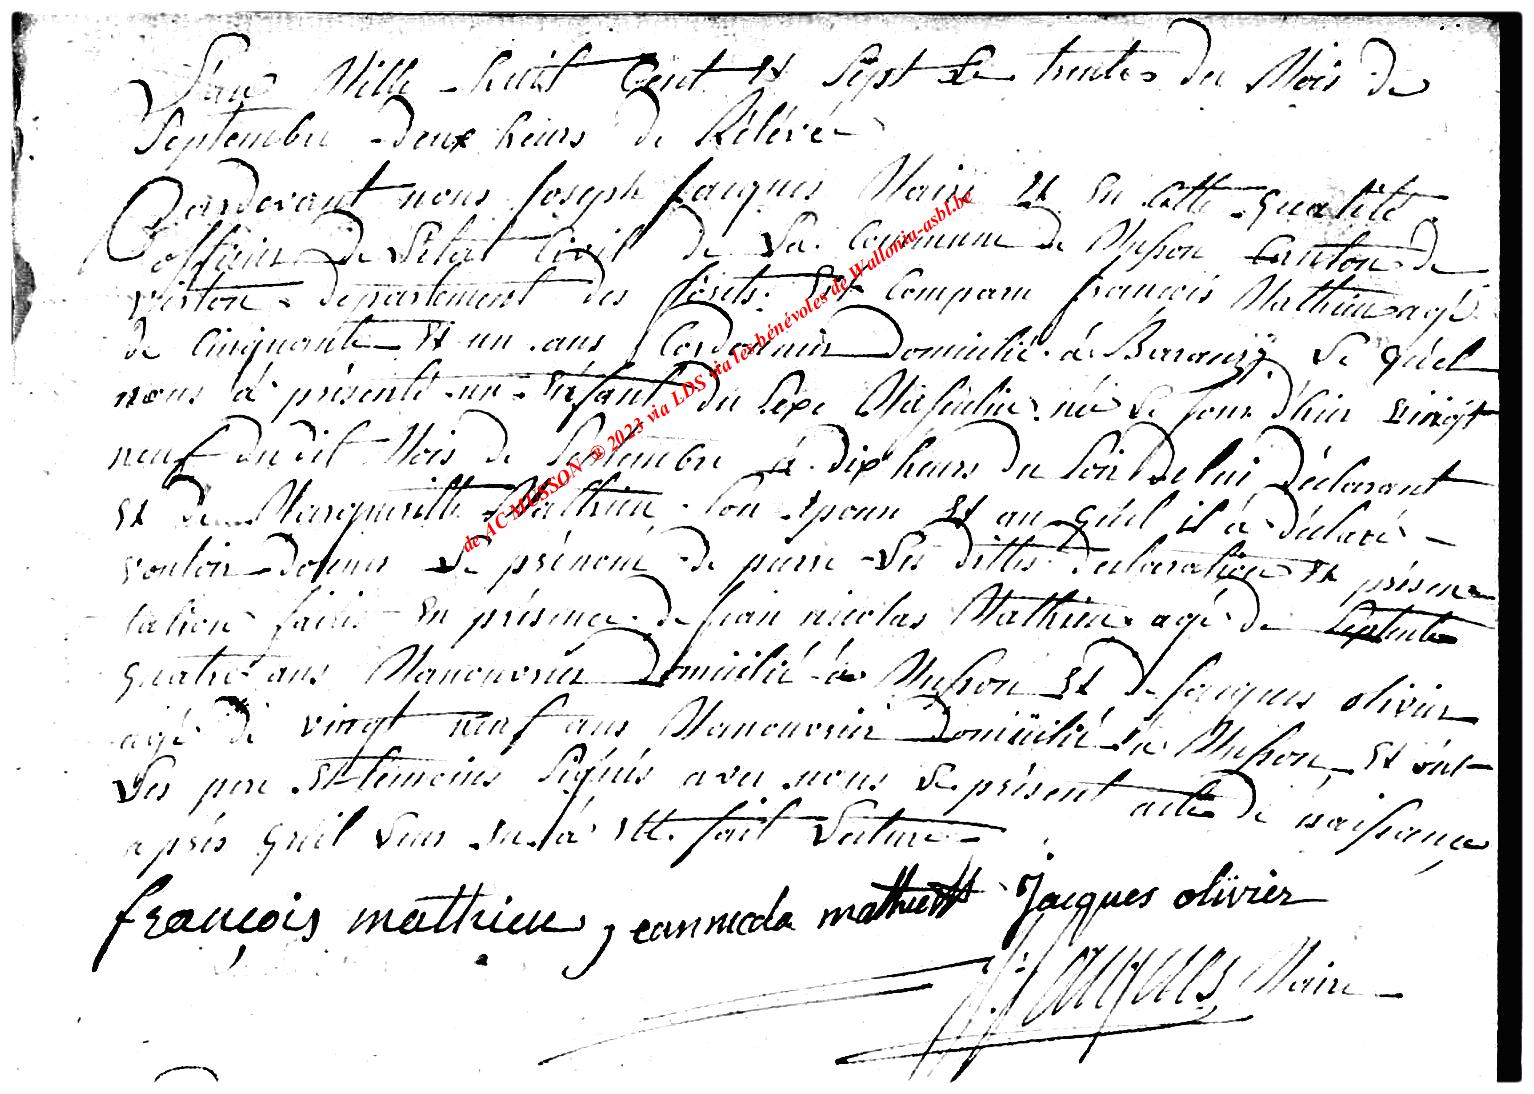 L'an Mille huit Cent Et Sept Le trente du Mois de
Septembre deux heurs de Rélévé
Pardevant nous Joseph Jacques Maire Et En Cette qualité
officier de L'état Civil de La Commune de Musson Canton de
Virton departement des forêts Est Comparu françois Mathieu agé
de Cinquante Et un ans Cordonnier Domicilié à Baranzÿ Le quel
nous à présenté un Enfant du Sexe Masculin né Le Jour d'hier vingt
neuf du dit Mois de Septembre à dix heurs du Soir De lui Déclarant
Et de Margueritte Mathieu Son Epouse Et au quel il à déclaré
vouloir donner Le prénom de pierre Les dittes declaration Et présen
tation faites En présence de Jean nicolas Mathieu agé de Septente
quatre ans Manouvrier Domicilié à Musson Et de Jacques olivier
agé de vingt neuf ans Manouvrier Domicilié à Musson, Et ont
Les pere Et temoins Signés avec nous Le présent acte de naissance
après qu'il Leur En à Eté fait Lecture
françois mathieu jean nicola mathieu Jacques olivier
J: Jacques Maire
de AC MUSSON ® 2023 via LDS via les bénévoles de Wallonia-asbl.be